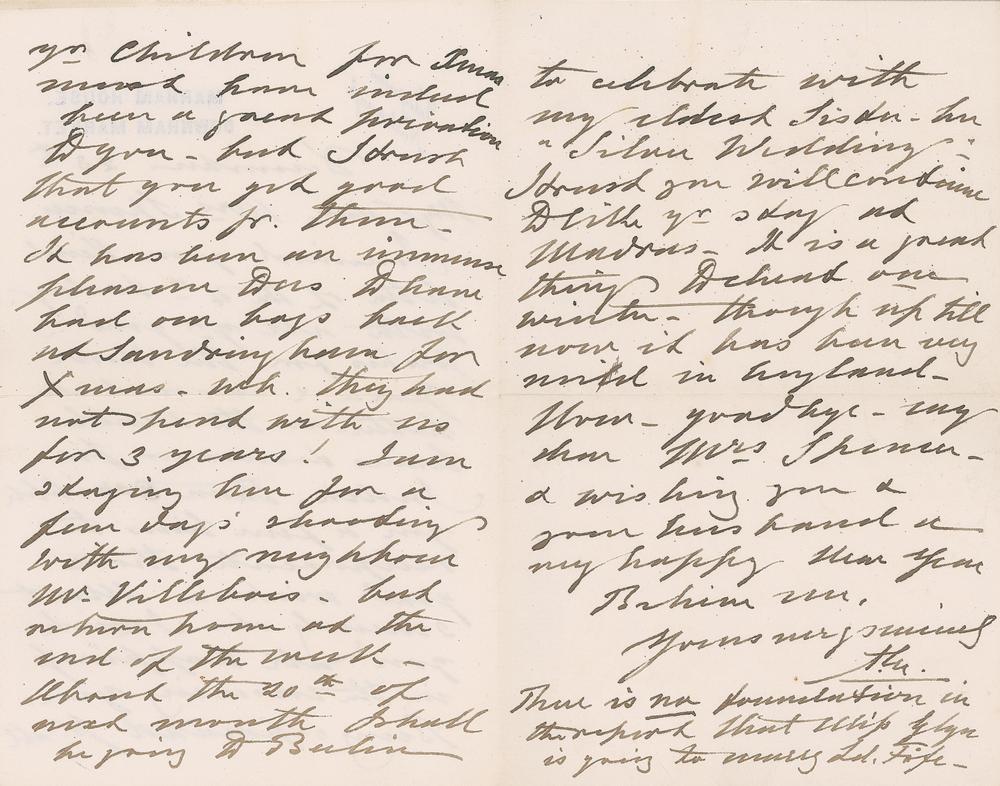 yr Children for Xmas
must have indeed
been a great privation
to you - but I trust
that you get good
accounts fr. them -
It has been an immense
pleasure to us to have
had our boys back
at Sandringham for
Xmas - wh. they had
not spend with us
for 3 years! I am
staying here for a
few days' shooting
with my neighbour
Mr. Villebois - but
return home at the
end of the week -
About the 20th of
next month I shall
be going to Berlin
to celebrate with
my eldest Sister - her
"Silver Wedding" -
I trust you will continue
to like yr stay at
Madras - It is a great
thing to cheat one
winter - though up till
now it has been very
mild in England -
Now - goodbye - my
dear Mrs Spencer -
& wishing you &
your husband a
very happy New Year
Believe me,
Yours very sincerely
There is no foundation in
the report that Miss Glyn
is going to marry Ld. Fife -
MARHAM HOUSE.
DOWNHAM MARKET.